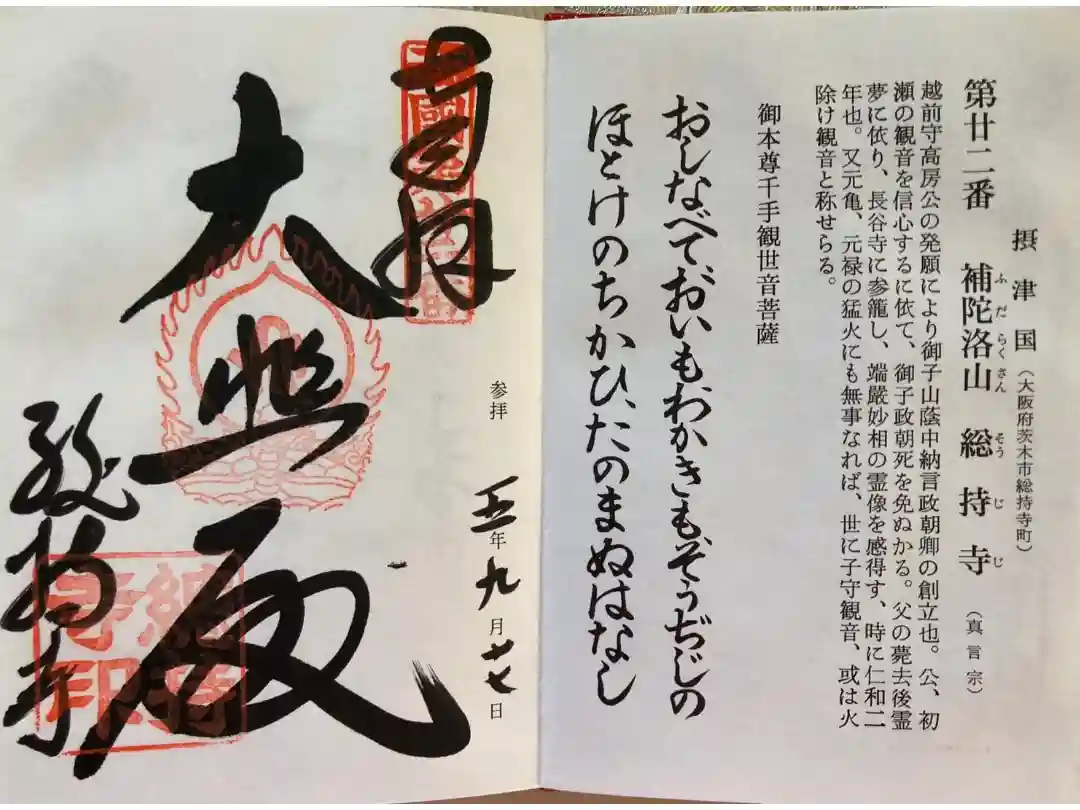 摂津国(大阪府茨木市総持寺町)
第廿二番 補陀洛山 総持寺(真言宗)
ふだらくさん そうじじ
越前守高房公の発願により御子山蔭中納言政朝卿の創立也。公、初
瀬の観音を信心するに依て、御子政朝死を免ぬかる。父の薨去後霊
夢に依り、長谷寺に参籠し、端厳妙相の霊像を感得す、時に仁和二
年也。又元亀、元禄の猛火にも無事なれば、世に子守観音、或は火
除け観音と称せらる。
御本尊千手観世音菩薩
おしなべておいもわかきもぞうぢじの
ほとけのちかひ、たのまぬはなし
参拝 五年九月十七日
大悲殿
総持寺
総持寺印